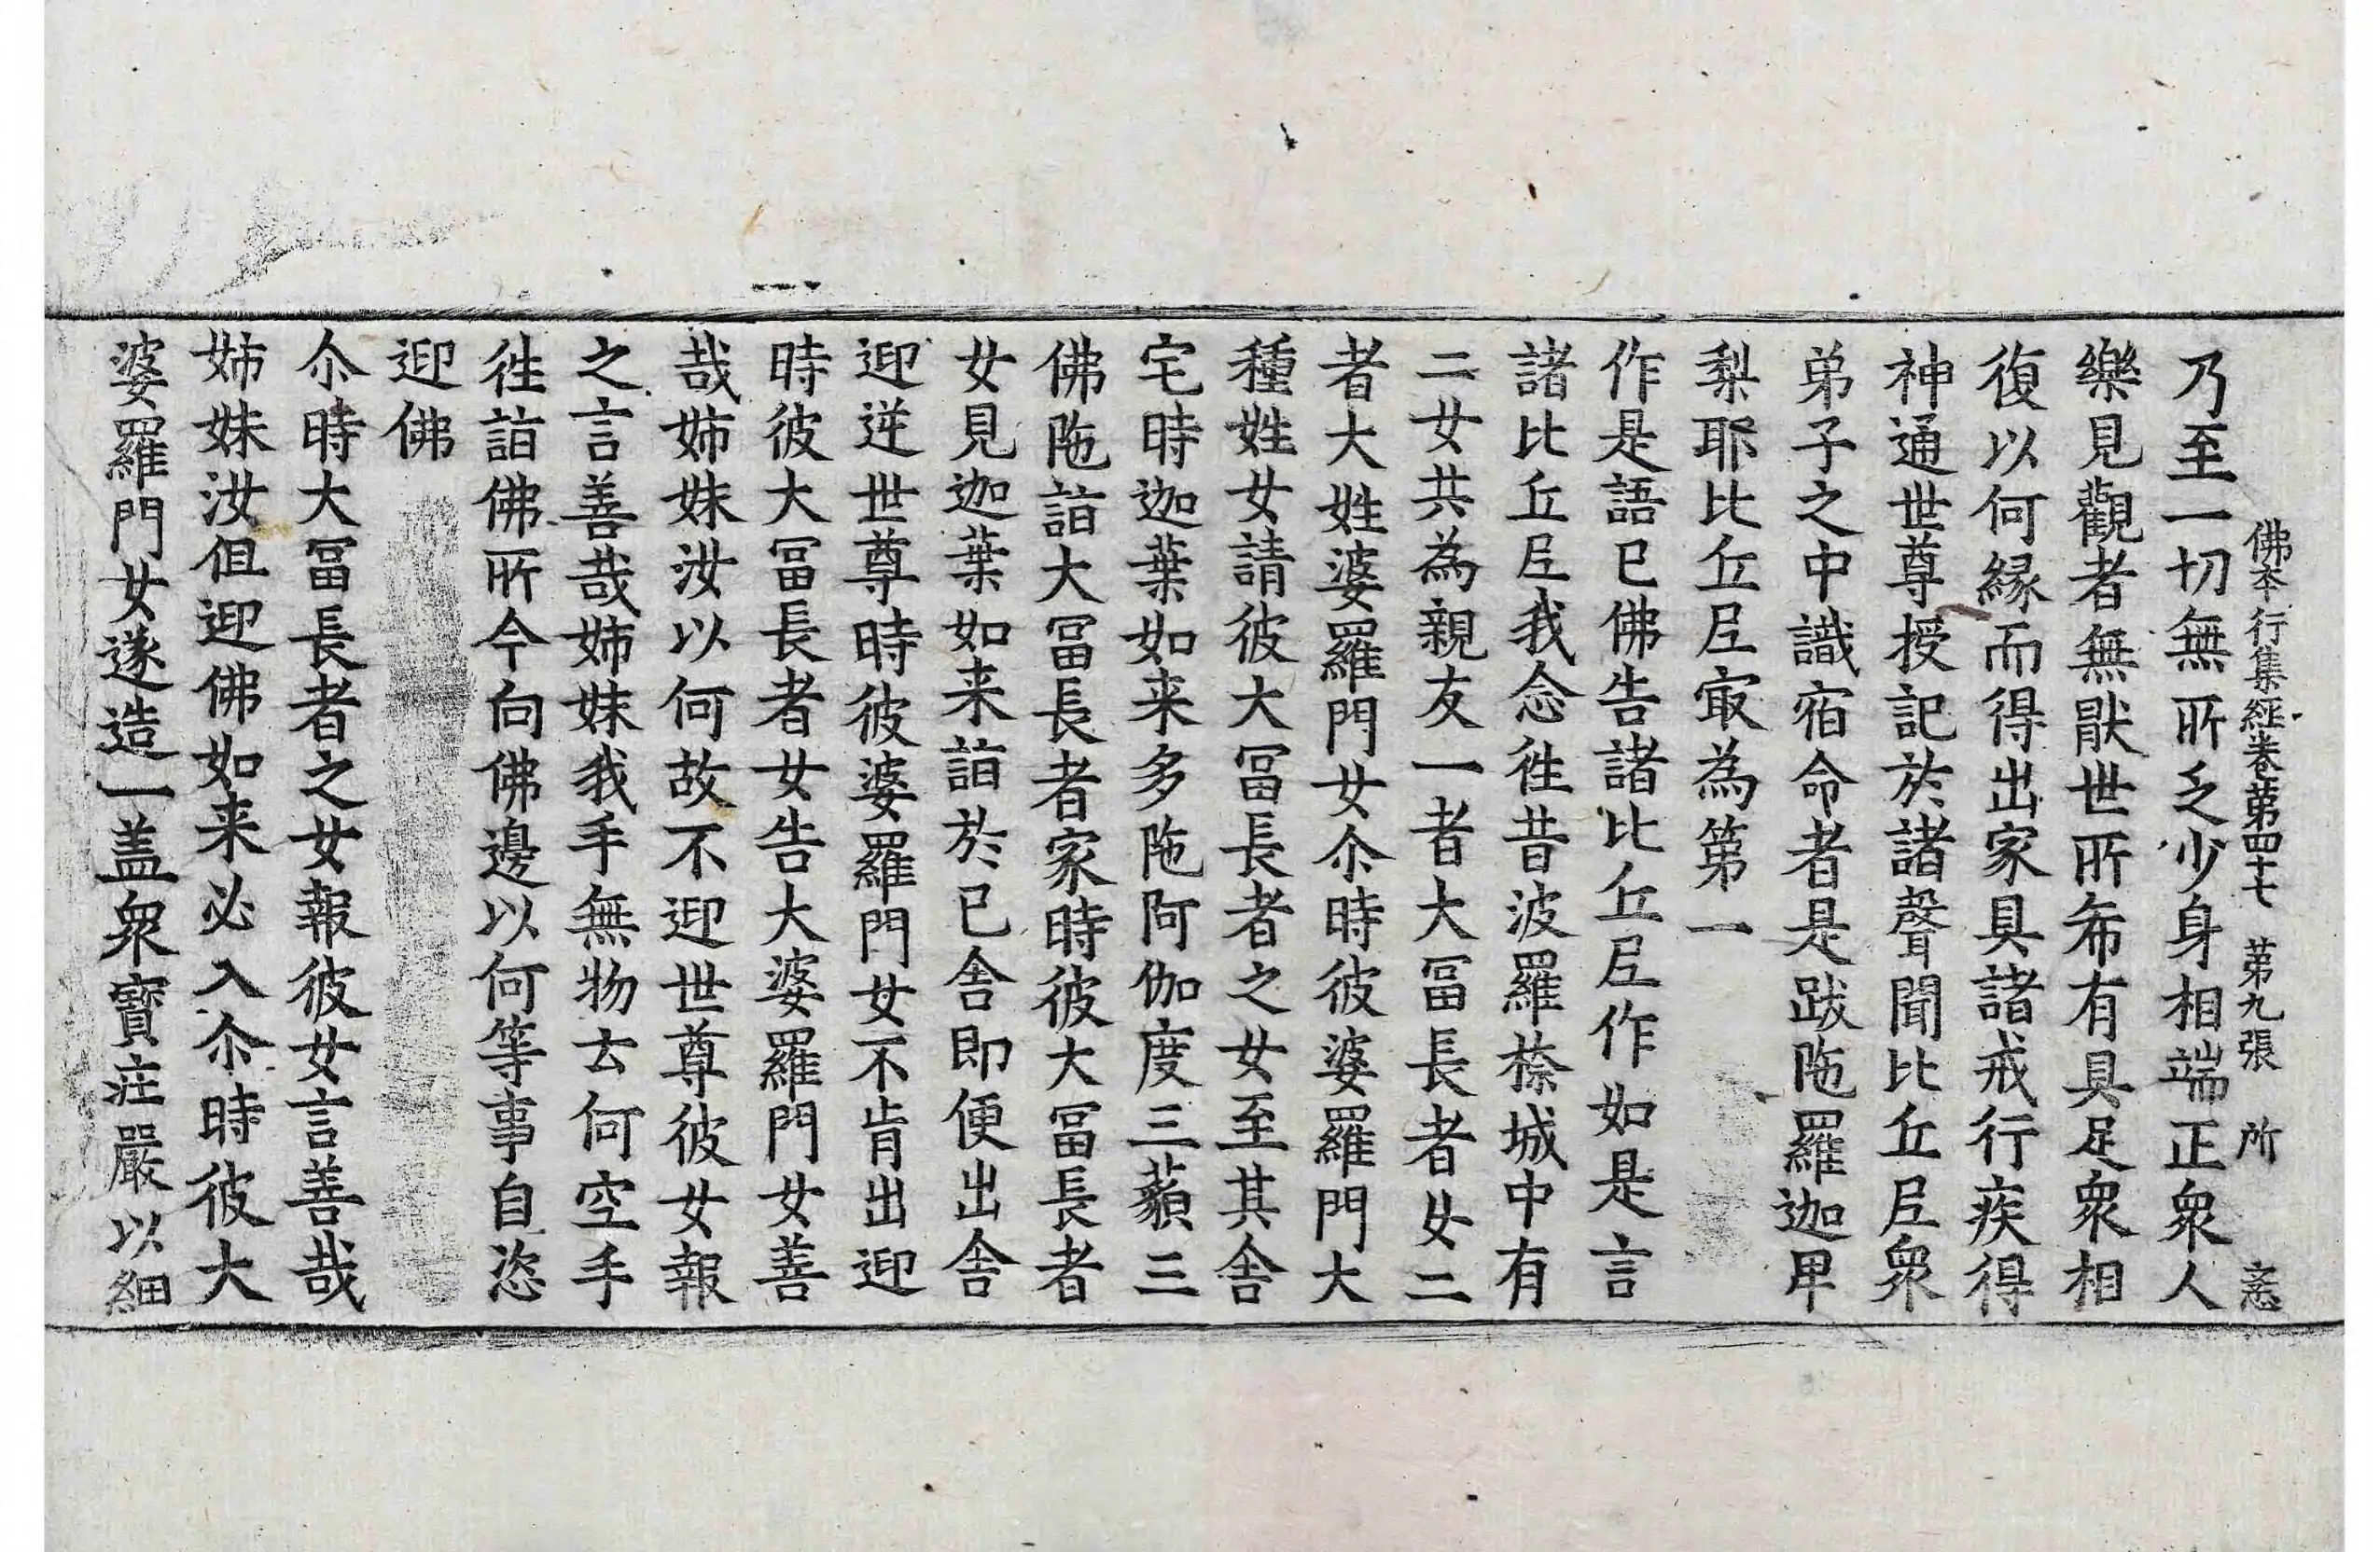 佛本行集經卷第四十七　第九張　所　忘
乃至一切無所乏少身相端正衆人
樂見觀者無猒世所希有具足衆相
復以何緣而得出家具諸戒行疾得
神通世尊授記於諸聲聞比丘尼衆
弟子之中識宿命者是跋陁羅迦卑
梨耶比丘尼㝡為第一
作是語已佛告諸比丘尼作如是言
諸比丘尼我念徃昔波羅㮈城中有
二女共為親友一者大冨長者女二
者大姓婆羅門女尒時彼婆羅門大
種姓女請彼大冨長者之女至其舍
宅時迦葉如来多陁阿伽度三藐三
佛陁詣大冨長者家時彼大冨長者
女見迦葉如来詣於已舍即便出舍
迎逆世尊時彼婆羅門女不肯出迎
時彼大冨長者女告大婆羅門女善
哉姉妹汝以何故不迎世尊彼女報
之言善哉姉妹我手無物云何空手
徃詣佛所今向佛邊以何等事自恣
迎佛
尒時大冨長者之女報彼女言善哉
姉妹汝但迎佛如来必入尒時彼大
婆羅門女遂造一盖衆寶庄嚴以細